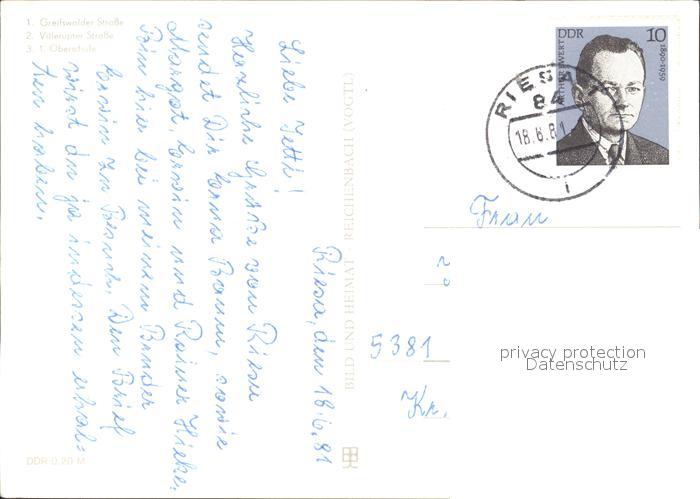 1. Greifswalder Straße
2. Vitlerupter Straße
3. 1. Oberschule
Riesa, den 18.6.81
Liebe Jetti!
Herzliche Grüße von Riesa
sendet Dir Erna Baum, sowie
Margot, Erwin und Rainer Hieke.
Bin hier bei meinem Bruder
Erwin zu Besuch. Den Brief
wirst du ja indessen erhal=
ten haben.
DDR 0,20 M
BILD UND HEIMAT REICHENBACH (VOGTL)
DDR
10
1890-1959
RIESA
84
18.6.81
1
Frau
5381
Kr.
privacy protection
Datenschutz